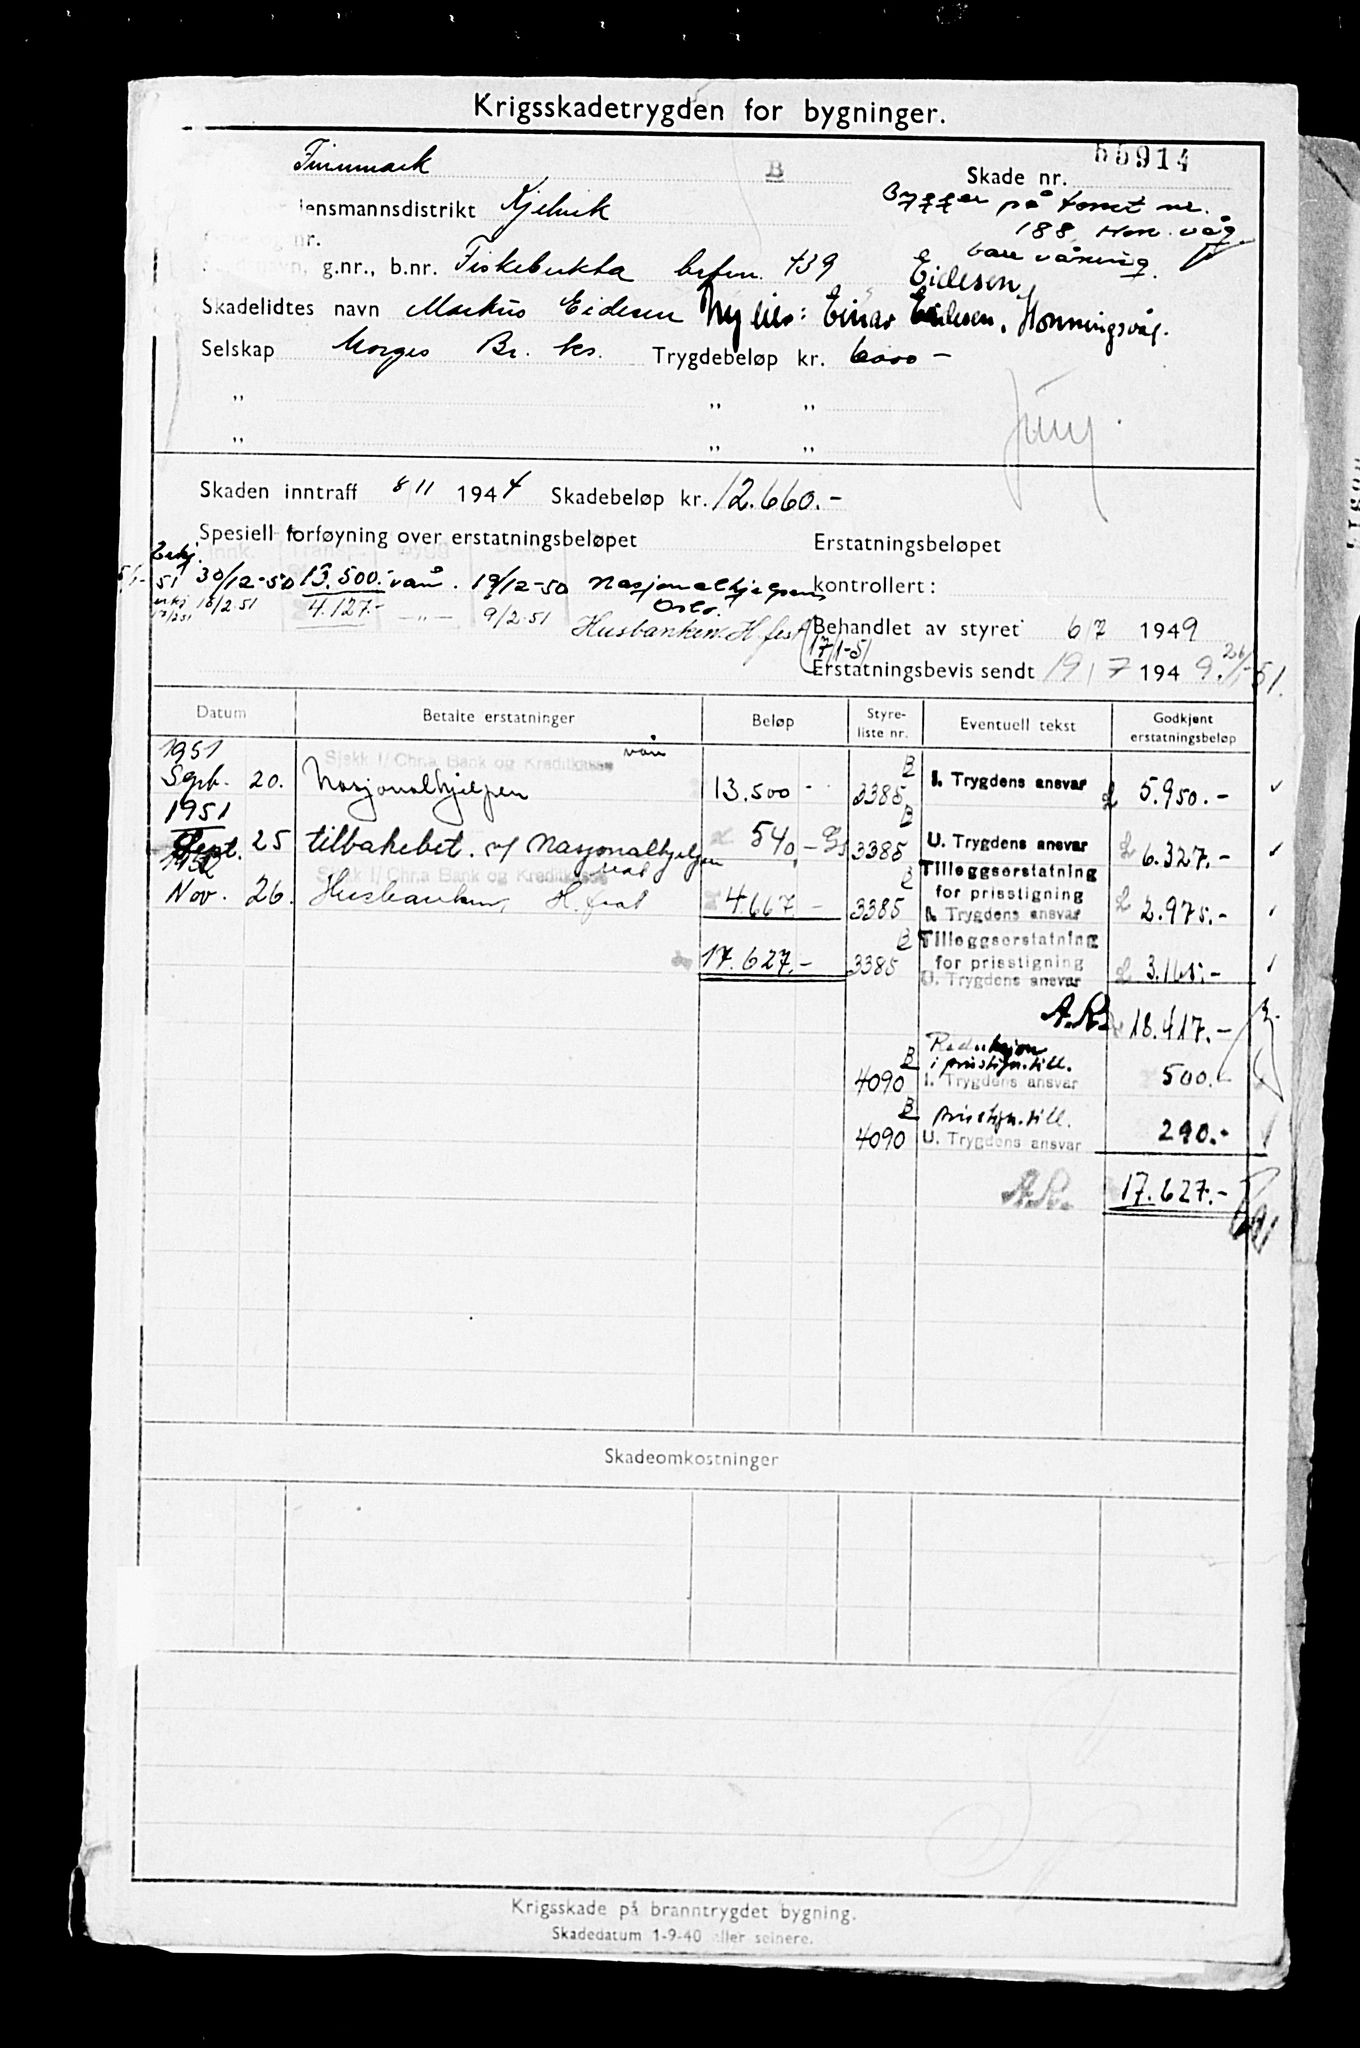 Krigsskadetrygden for bygninger.
Finnmark
B
Skade nr. 55914
lensmannsdistrikt Kjelvik
Bygger på tomt nr.
188, Hon. våg.
bare våning.
nr.
g.nr., b.nr. Fiskebukta brfm. 439
Eidesen
Skadelidtes navn Markus Eidesen Ny eier: Einar Eidesen, Honningsvåg.
Selskap Norges Br. ks. Trygdebeløp kr. 6000 -
" " "
" " "
Skaden inntraff 8/11 1944 Skadebeløp kr. 12.660.-
Spesiell forføyning over erstatningsbeløpet
Erstatningsbeløpet
kontrollert:
30/12-50 13.500.- vån. 19/12-50 Nasjonalhjelpen
Oslo.
18/2.51 4.127.- -"- 9/2.51 Husbanken. H.fest
Behandlet av styret 6/7 1949
17/1-51
Erstatningsbevis sendt 19/7 1949. 26/1-51.
Datum Betalte erstatninger Beløp Styre-liste nr. Eventuell tekst Godkjent erstatningsbeløp
1951 Sjekk I/ Chr.a Bank og Kreditkasse vån
Sept. 20. Nasjonalhjelpen 13.500 - B 3385 I. Trygdens ansvar 5.950.-
1951
Sept. 25 tilbakebet. af Nasjonalhjelpen 540,- B 3385 U. Trygdens ansvar 6.327.-
1952 Sjekk I/ Chr.a Bank og Kreditkasse
Nov. 26. Husbanken, H.fest 4.667 - B 3385 Tilleggserstatning for prisstigning I. Trygdens ansvar 2.975.-
17.627.- B 3385 Tilleggserstatning for prisstigning U. Trygdens ansvar 3.165.-
A.R. 18.417.-
B 4090 Reduksjon i prisstign.till. I. Trygdens ansvar 500.-
B 4090 prisstign.till. U. Trygdens ansvar 290.-
A.R. 17.627.-
Skadeomkostninger
Krigsskade på branntrygdet bygning.
Skadedatum 1-9-40 eller seinere.